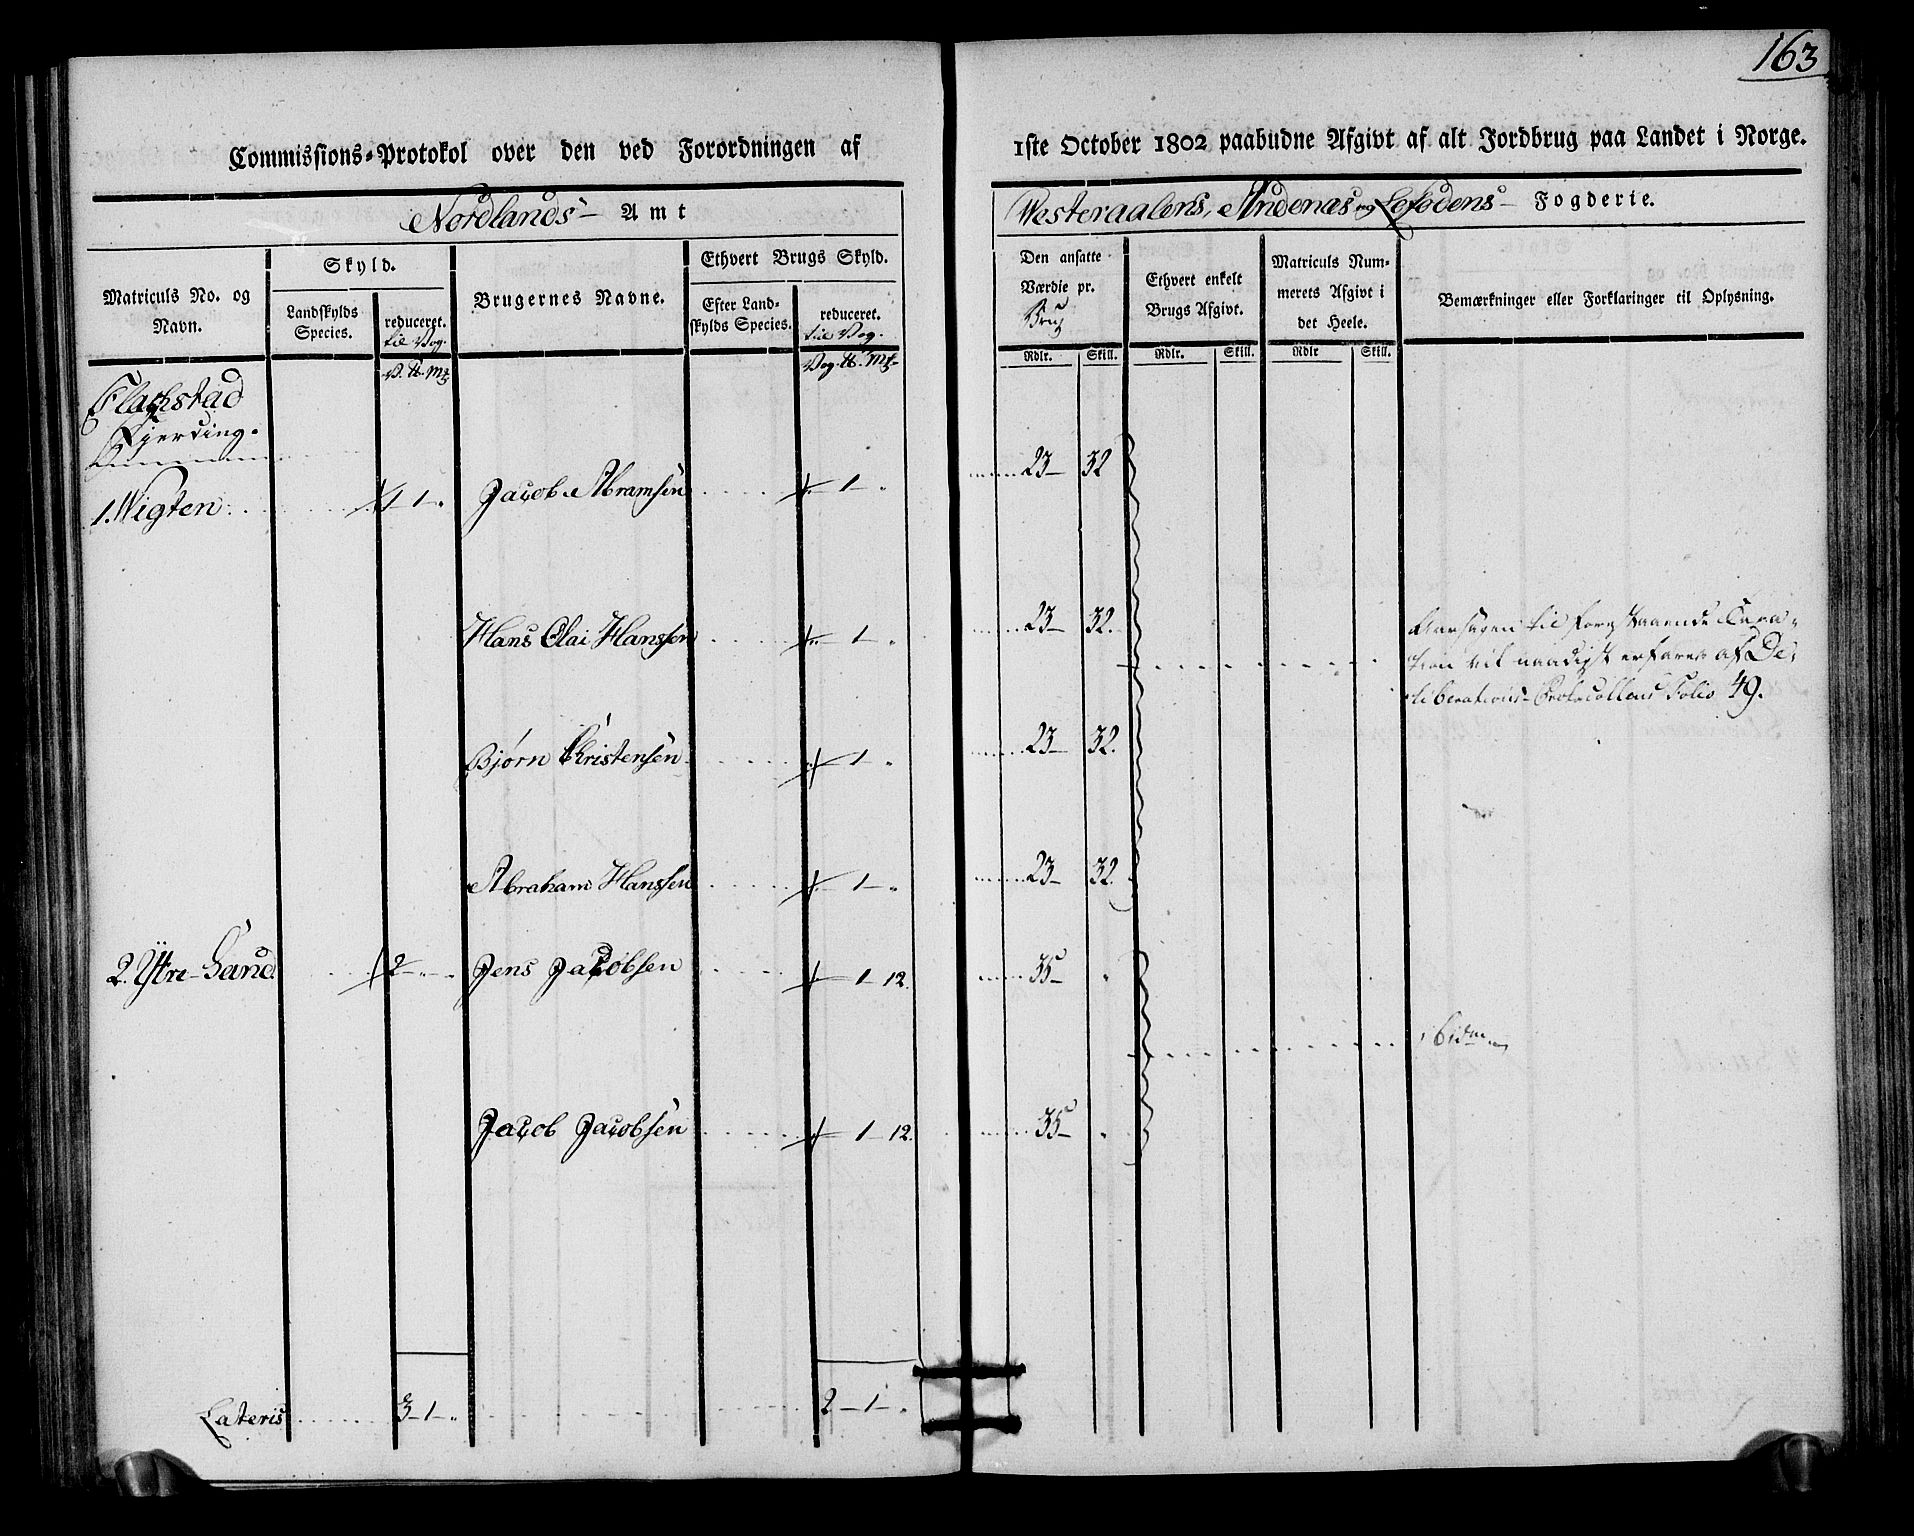 163
Commissions-Protokol over den ved Forordningen af
1ste October 1802 paabudne Afgivt af alt Jordbrug paa Landet i Norge.
Nordlands Amt
Westeraalens, Andenæs og Lofodens Fogderie.
Matriculs No. og Navn.
Skyld.
Landskylds Species.
reduceret. til Vog.
V. ℔. Mk
Brugernes Navne.
Ethvert Brugs Skyld.
Efter Landskylds Species.
reduceret. til Vog.
Vog. ℔. Mk
Den ansatte Værdie pr. Brug
Rdlr. Skill.
Ethvert enkelt Brugs Afgivt.
Rdlr. Skill.
Matriculs Nummerets Afgivt i det Heele.
Rdlr Skill.
Bemærkninger eller Forklaringer til Oplysning.
Flachstad
Fjerding.
1. Wigten 1 1 „ Jacob Abramsen 1 „ 23 32
Hans Olai Hanssen 1 „ 23 32.
Aarsagen til foregaaende Taxa-
tion vil naadigst erfares af De-
liberations-Protocollens Folio 49.
Bjørn Christensen 1 „ 23 32.
Abraham Hanssen 1 „ 23 32.
2. Ytre-Sand 2 „ „ Jens Jacobsen 1 12. 35 „
ibidm
Jacob Jacobsen 1 12. 35 „
Lateris 3 1 „ 2 1 „